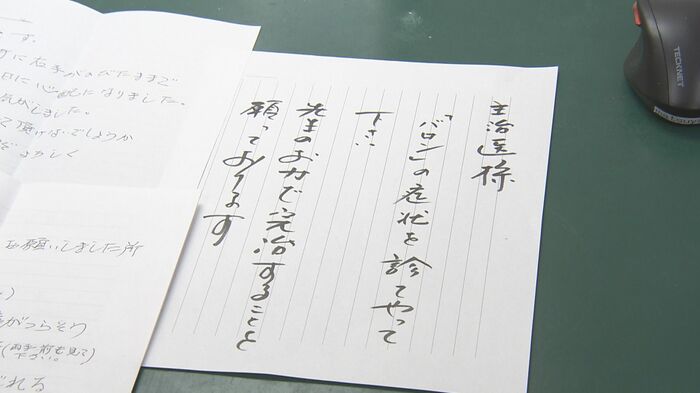 主治医様
「バロン」の症状を診てやって
下さい
先生のお力で完治することと
願っております
す。
に右手がのびたままで
日に心配になりました。
気がしました。
て頂けないでしょうか
よろしく
お願いしました所
がつらそう
(両手前も見て下さい。)
れる
TECKNET